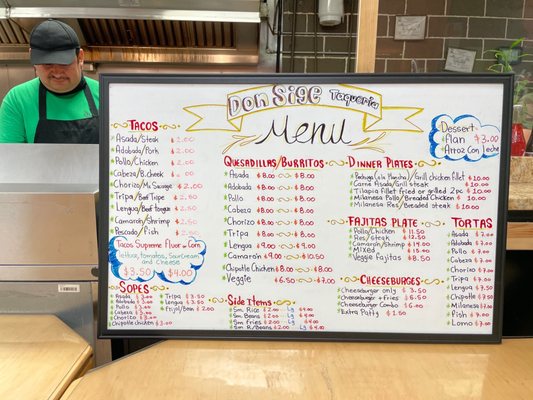 Don Sige Taqueria
Menu
TACOS
Asada/Steak $2.00
Adobada/Pork $2.00
Pollo/Chicken $2.00
Cabeza/B. Cheek $2.00
Chorizo/Mx Sausage $2.00
Tripa/Beef Tripe $2.00
Lengua/Beef Tongue
Camarón/Shrimp
Pescado/Fish
Tacos Supreme Flour or Corn
lettuce, tomatoes, sourcream
and cheese
$3.50 $4.00
SOPES
Asada $3.00
Adobada $3.00
Pollo $3.00
Cabeza $3.00
Chorizo $3.00
Chipotle chicken $3.00
Tripa $3.50
Lengua $3.50
Frijol/Bean $2.00
QUESADILLAS/BURRITOS
Asada $8.00 $8.00
Adobada $8.00 $8.00
Pollo $8.00 $8.00
Cabeza $8.00 $8.00
Chorizo $8.00 $8.00
Tripa $8.00 $8.00
Lengua $9.00 $9.00
Camarón $9.00 $10.00
Chipotle Chicken $8.00 $8.00
Veggie $6.50 $6.50
Side Items
Sm. Rice $2.00 Lg $4.00
Sm. Beans $2.00 Lg $4.00
Sm Fries $2.00 Lg
Sm R/Beans $2.00 Lg
Dessert
Flan $3.00
Arroz Con leche
DINNER PLATES
Pechuga (a la Plancha)/Grill chicken fillet $10.00
Carne Asada/Grill steak $10.00
Tilapia fillet fried or grilled 2pc $10.00
Milanesa Pollo/Breaded Chicken $10.00
Milanesa Res/Breaded steak $10.00
FAJITAS PLATE
Pollo/Chicken $11.50
Res/steak $12.50
Camarón/Shrimp $14.00
Mixed $15.00
Veggie Fajitas $8.50
CHEESEBURGERS
Cheeseburger only $3.50
Cheeseburger + Fries $6.50
Cheeseburger Combo $6.00
Extra Patty $1.50
TORTAS
Asada $7.00
Adobada $7.00
Pollo $7.00
Cabeza $7.00
Chorizo $7.00
Tripa $7.00
Lengua $7.50
Chipotle $7.50
Milanesa $7.50
Fish $7.00
Lomo $7.00